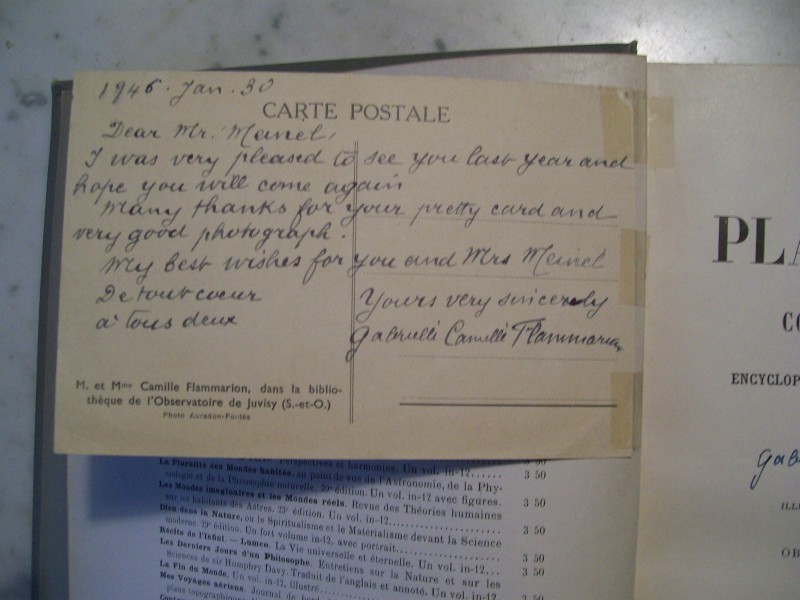 1946. Jan. 30
CARTE POSTALE
Dear Mr. Meinel,
I was very pleased to see you last year and
hope you will come again
Many thanks for your pretty card and
very good photograph.
My best wishes for you and Mrs Meinel
De tout coeur
à tous deux
Yours very sincerely
Gabrielle Camille Flammarion
M. et Mme Camille Flammarion, dans la biblio-
thèque de l'Observatoire de Juvisy (S.-et-O.)
Photo
Perspectives et harmonies. Un vol. in-12...... 3 50
La Pluralité des Mondes habités, au point de vue de l'Astronomie, de la Phy-
siologie et de la Philosophie naturelle. 39e édition. Un vol. in-12 avec figures. 3 50
Les Mondes imaginaires et les Mondes réels. Revue des Théories humaines
sur les habitants des Astres. 23e édition. Un vol. in-12 3 50
Dieu dans la Nature, ou le Spiritualisme et le Matérialisme devant la Science
moderne. 29e édition. Un fort volume in-12, avec portrait 3 50
Récits de l'Infini. — Lumen. La Vie universelle et éternelle. Un vol. in-12... 3 50
Les Derniers Jours d'un Philosophe. Entretiens sur la Nature et sur les
Sciences de sir Humphry Davy. Traduit de l'anglais et annoté. Un vol. in-12. 3 50
La Fin du Monde. Un vol. in-12, illustré 3 50
Mes Voyages aériens. Journal de bord
plans topographiques.
PLA
CO
ENCYCLOP
Gab
ILLU
OB